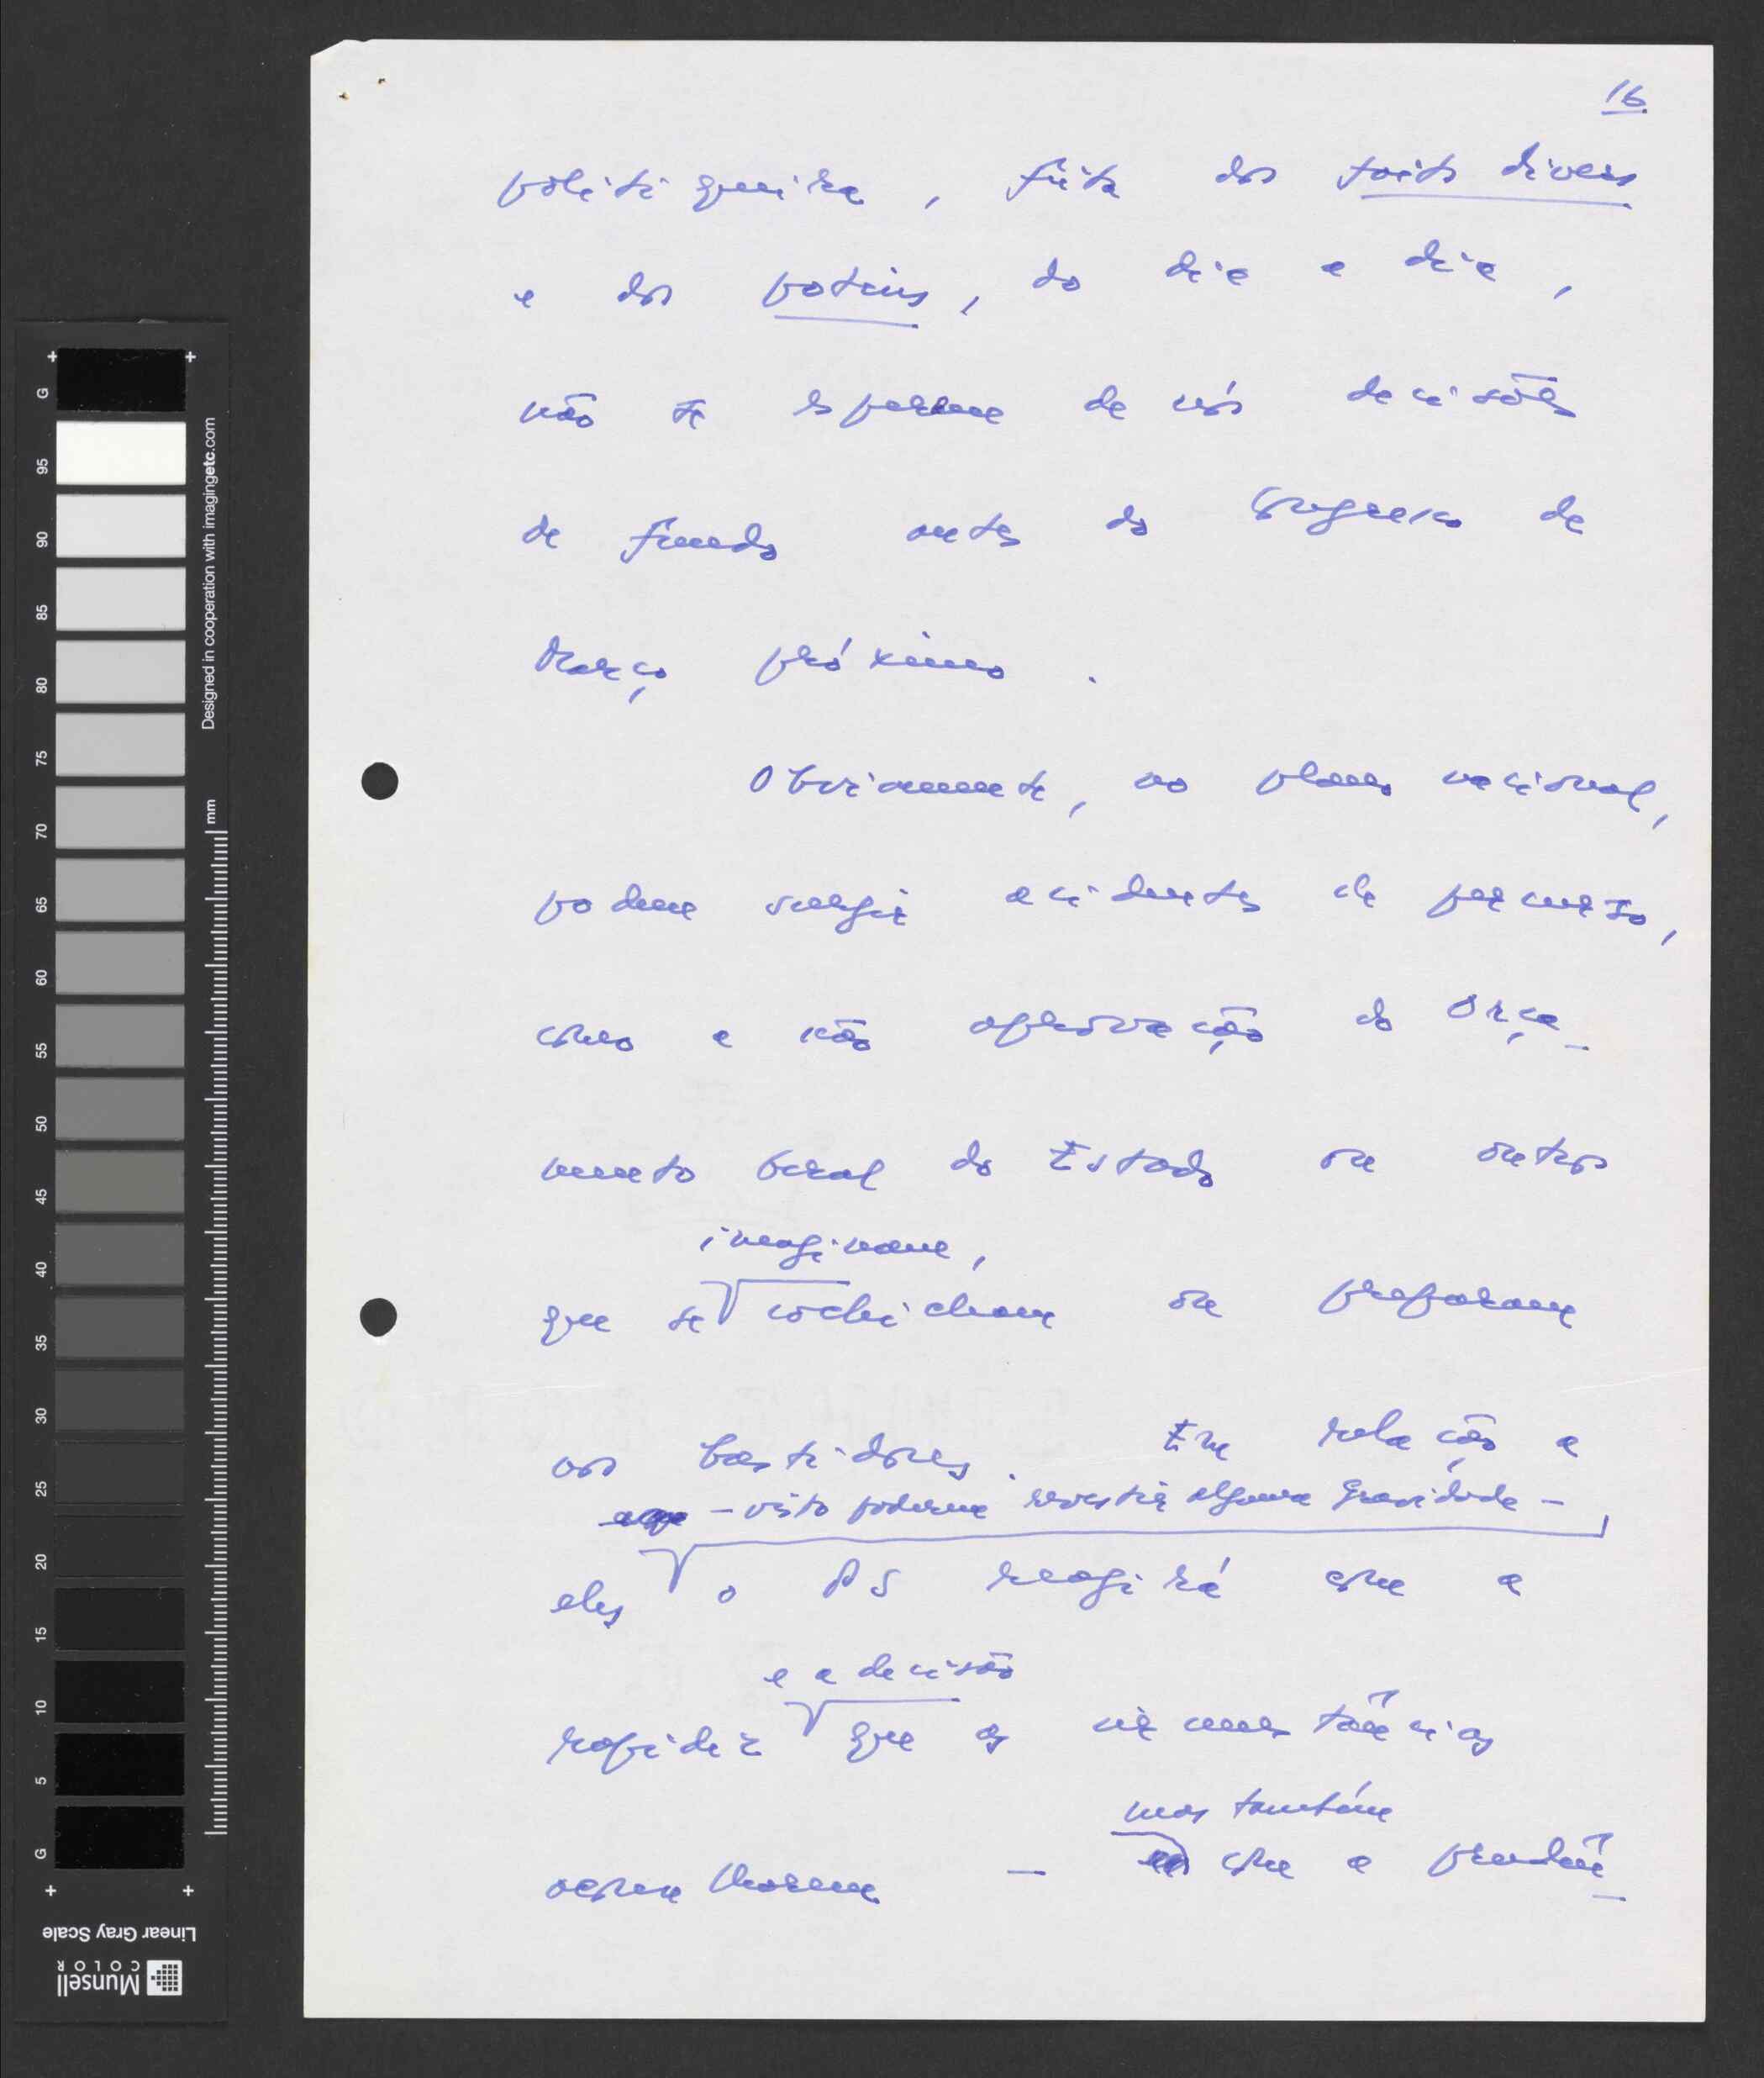 16
politiqueira, feita dos faits divers
e dos potins, do dia a dia,
não se esperem de nós decisões
de fundo antes do Congresso de
Março próximo.
Obviamente, no plano nacional,
podem surgir acidentes de percurso,
como a não aprovação do Orça-
mento Geral do Estado ou outros
imaginam,
que se cochicham ou preparam
nos bastidores. Em relação a
- visto poderem revestir alguma gravidade -
eles o PS reagirá com a
e a decisão
rapidez que as circunstâncias
mas também
aconselharem - com a prudên-
G
95
90
85
80
75
70
65
60
55
50
45
40
35
30
25
20
15
10
5
G
Designed in cooperation with imagingetc.com
mm
Linear Gray Scale
Munsell
COLOR